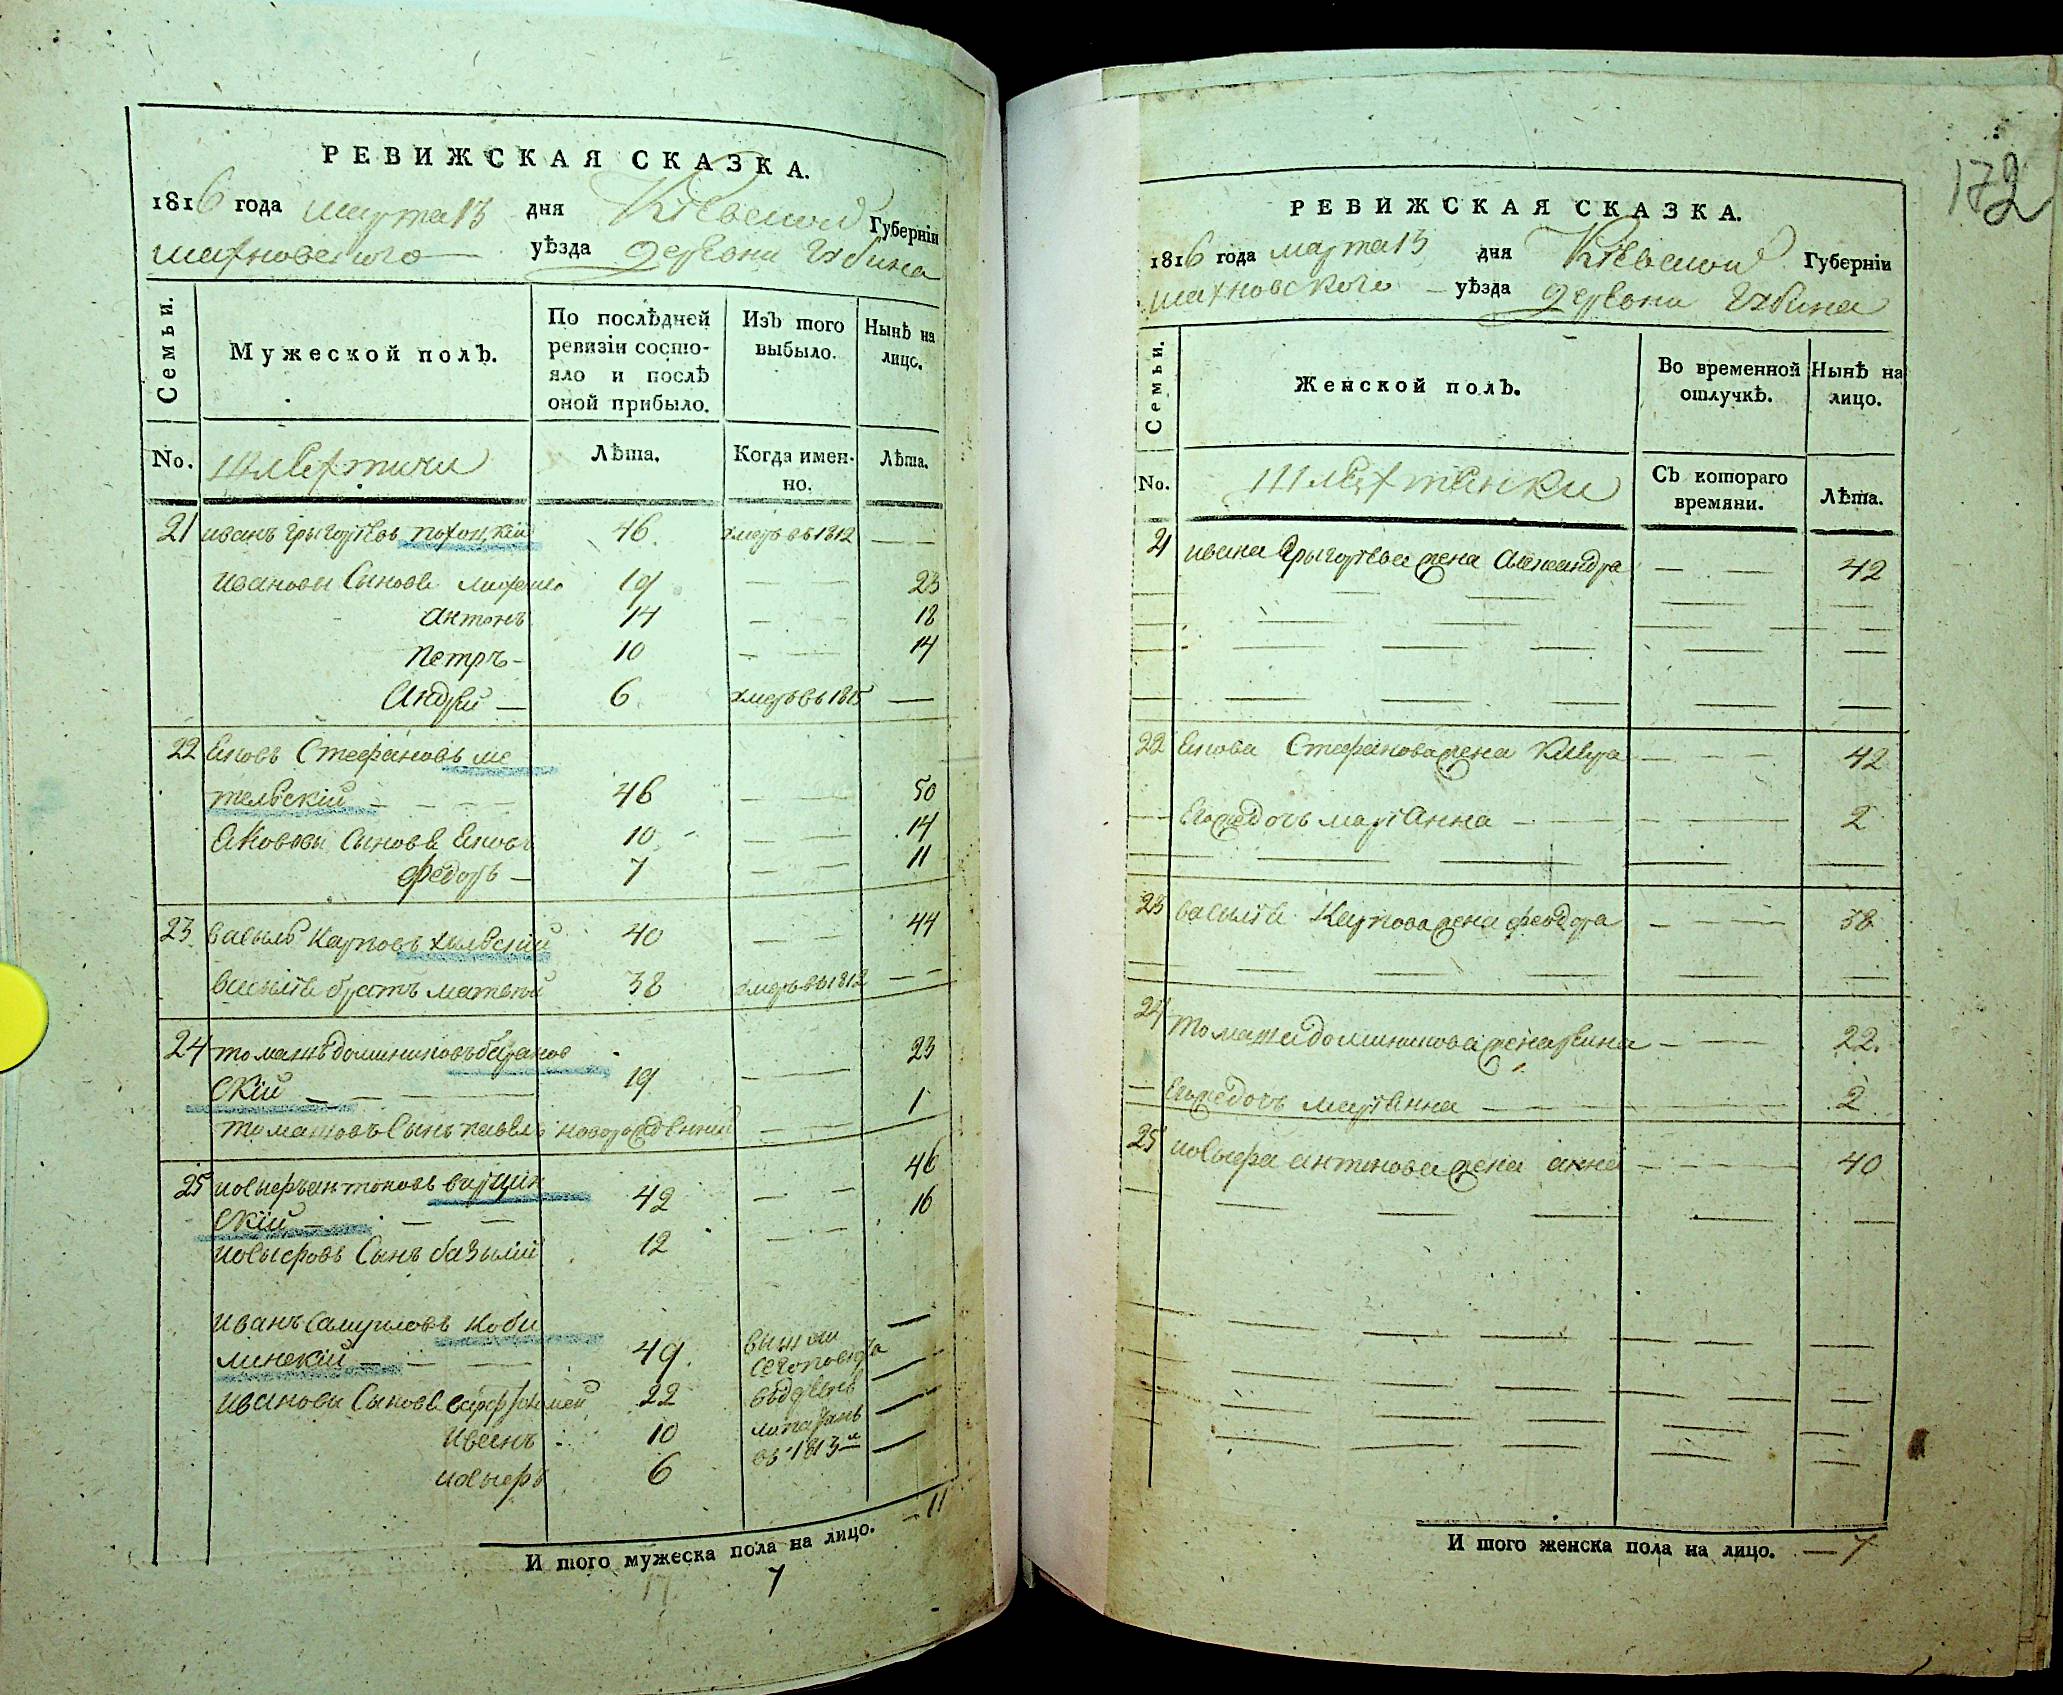 РЕВИЖСКАЯ СКАЗКА.
1816 года марта 13 дня Кіевской Губерніи
махновского уѣзда деревни Глбина
Семьи.
Мужеской полъ.
По послѣдней
ревизіи состо-
яло и послѣ
оной прибыло.
Изъ того
выбыло.
Нынѣ на
лицо.
No.
Шляхтичи
Лѣта.
Когда имен-
но.
Лѣта.
21 иванъ Грыгорѣевъ похоцкій 46. умеръ въ 1812 — —
Иванови Сынове 19 — — 23
антонъ 14 — — 18
Петръ - 10 — — 14
Андрей — 6 умеръ въ 1815 —
22 Яковъ Стефановъ ме
тельскій — — — — 46 — — 50
Якововы Сынове Яковъ 10 — — 14
федоръ — 7 — — 11
23 василь Карповъ хилевскій 40 — — 44
василѣя братъ матвей 38 умеръ въ 1812 — —
24 томашъ доминиковъ баранов
скій — — — 19 — — 23
томашовъ Сынъ павелъ новорожденній — — 1
25 иосыфъ антоновъ
скій — — — 42 — — 46
иосыфовъ Сынъ базылій 12 — — 16
иванъ Самуиловъ коби
линскій — — — 49. —
Иванови Сынове варфоломей 22 —
Иванъ 10 —
иосыфъ 6 —
вышли
въ 1813 м
И того мужеска пола на лицо. — 11
7
172
РЕВИЖСКАЯ СКАЗКА.
1816 года марта 13 дня Кіевской Губерніи
махновского — уѣзда деревни Глбина
Семьи.
Женской полъ.
Во временной
отлучкѣ.
Нынѣ на
лицо.
No.
Шляхтянки
Съ котораго
времяни.
Лѣта.
21 ивана Грыгорѣева жена Александра — — 42
22 Якова Стефанова жена — — — 42
Егоже дочь маріанна — — — 2
23 василѣя Карпова жена феодора — — — 38
24 томаша доминикова жена — — — 22.
Егоже дочь маріанна — — — 2
25 иосыфа антонова жена анна — — — 40
И того женска пола на лицо. — 7